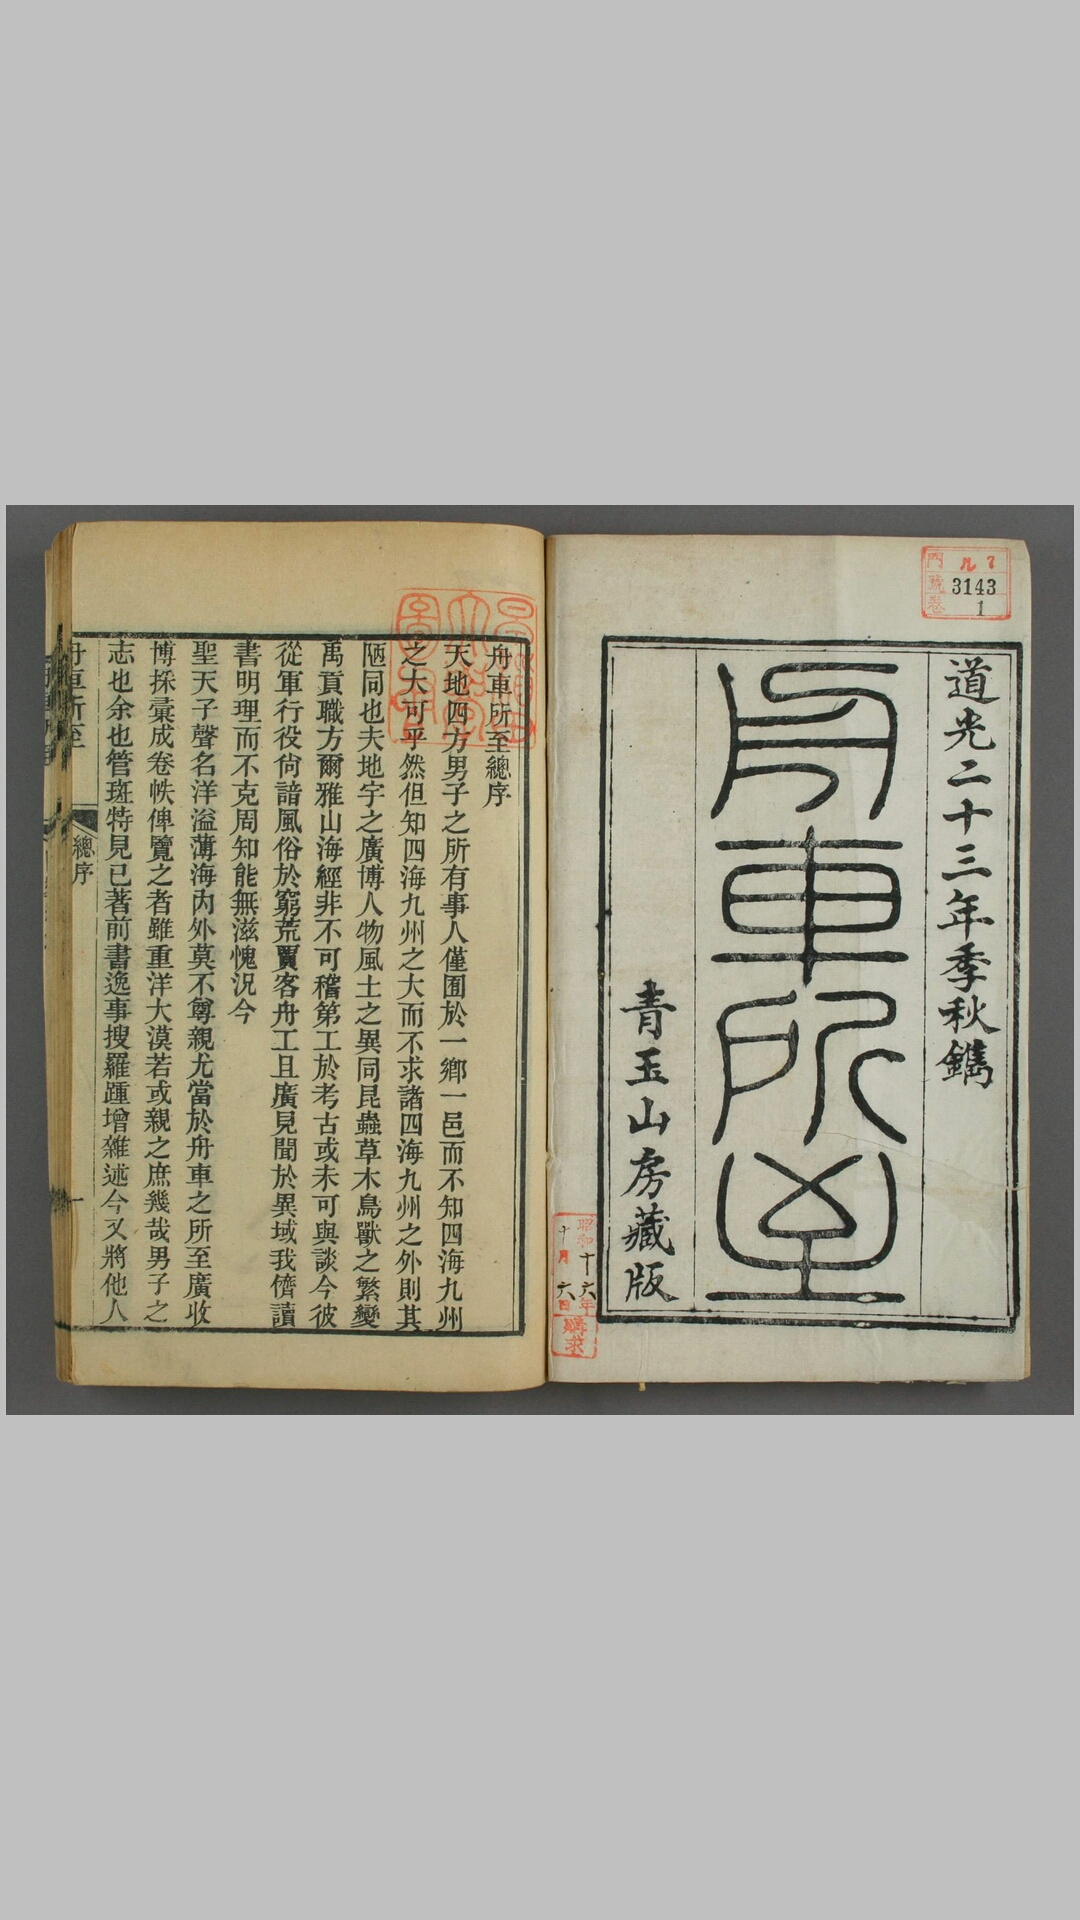 門 ル7
號 3143
卷 1
道光二十三年季秋鐫
舟車所至
青玉山房藏版
昭和十六年
十月六日
購求
舟車所至總序
天地四方男子之所有事人僅囿於一鄉一邑而不知四海九州
之大可乎然但知四海九州之大而不求諸四海九州之外則其
陋同也夫地宇之廣博人物風土之異同昆蟲草木鳥獸之繁變
禹貢職方爾雅山海經非不可稽第工於考古或未可與談今彼
從軍行役尙諳風俗於窮荒賈客舟工且廣見聞於異域我儕讀
書明理而不克周知能無滋愧況今
聖天子聲名洋溢薄海內外莫不尊親尤當於舟車之所至廣收
博採彙成卷帙俾覽之者雖重洋大漠若或親之庶幾哉男子之
志也余也管斑特見已著前書逸事搜羅踵增雜述今又將他人
舟車所至
總序
一